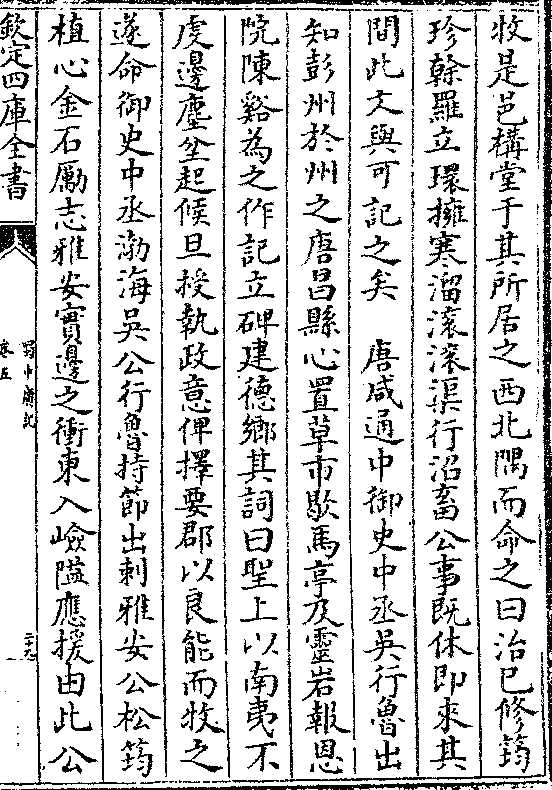 牧是邑構堂于其所居之西北隅而命之曰治已修筠
珍榦羅立環擁寒溜滚滚渠行沼畜公事既休即來其
間此文與可記之矣　唐咸通中御史中丞吳行魯出
知彭州於州之唐昌縣心置草市歇馬亭及靈岩報恩
院陳谿為之作記立碑建德鄉其詞曰聖上以南夷不
虔邊塵坌起候旦授執政意俾擇要郡以良能而牧之
遂命御史中丞渤海吳公行魯持節出刺雅安公松筠
植心金石厲志雅安實邊之衝東入嶮隘應援由此公
欽定四庫全書
蜀中廣記
卷五
二十九